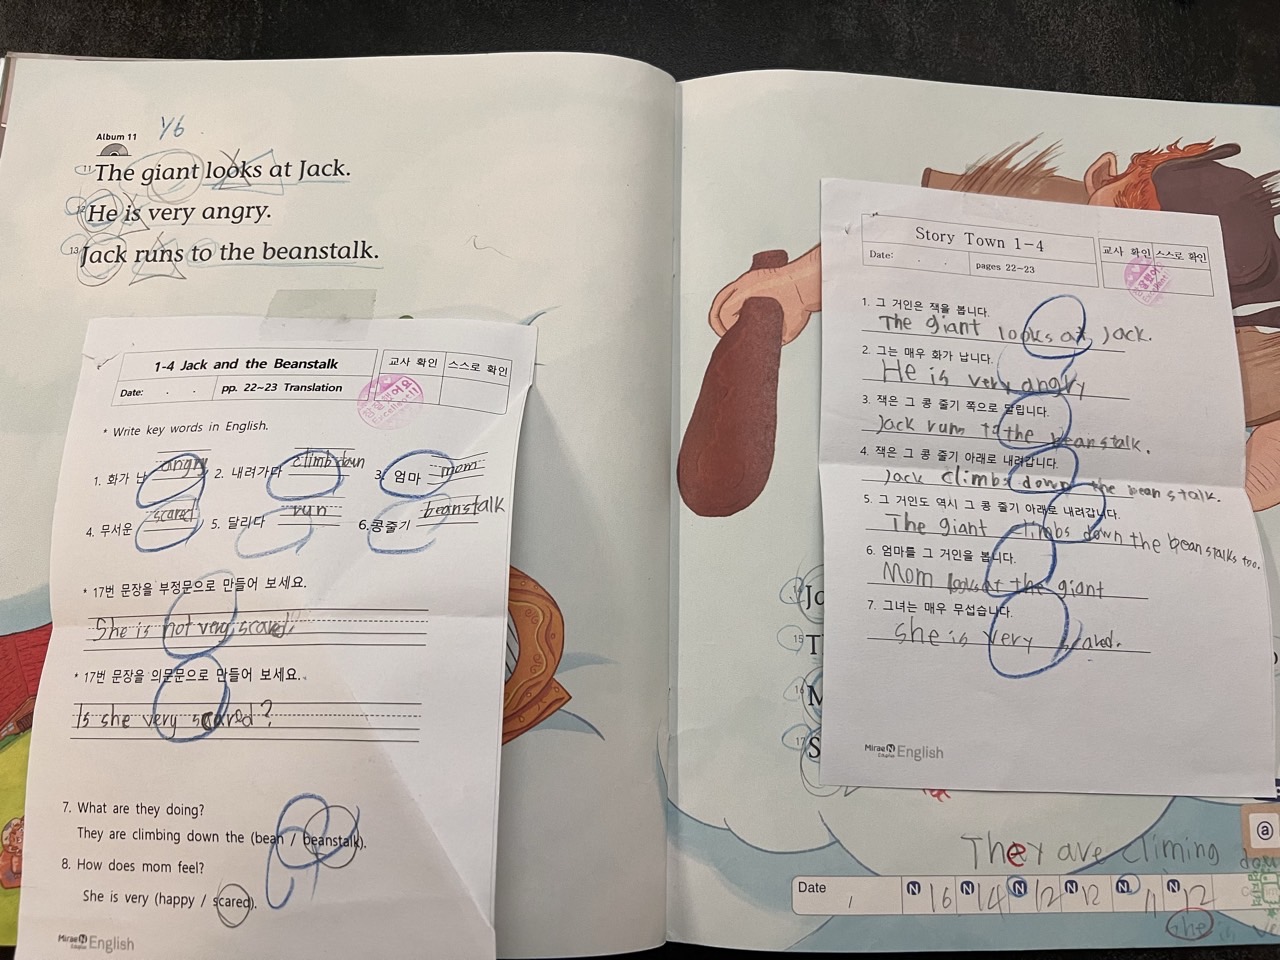 Album 11
Y6
11 The giant looks at Jack.
12 He is very angry.
13 Jack runs to the beanstalk.
1-4 Jack and the Beanstalk
교사 확인 스스로 확인
Date: . .
pp. 22~23 Translation
참 잘했어요
Excellent!!
* Write key words in English.
1. 화가 난 angry 2. 내려가다 climb down 3. 엄마 mom
4. 무서운 scared 5. 달리다 run 6. 콩줄기 beanstalk
* 17번 문장을 부정문으로 만들어 보세요.
She is not very scared.
* 17번 문장을 의문문으로 만들어 보세요.
Is she very scared?
7. What are they doing?
They are climbing down the (bean / beanstalk).
8. How does mom feel?
She is very (happy / scared).
Mirae N English
Story Town 1-4
교사 확인 스스로 확인
Date: . .
pages 22-23
1. 그 거인은 잭을 봅니다.
The giant looks at Jack.
2. 그는 매우 화가 납니다.
He is very angry
3. 잭은 그 콩 줄기 쪽으로 달립니다.
Jack run to the beanstalk.
4. 잭은 그 콩 줄기 아래로 내려갑니다.
Jack climbs down the beanstalk.
5. 그 거인도 역시 그 콩 줄기 아래로 내려갑니다.
The giant climbs down the beanstalks too.
6. 엄마를 그 거인을 봅니다.
Mom looks at the giant
7. 그녀는 매우 무섭습니다.
she is very scared.
Mirae N English
14 Ja
15 T
16 M
17 S
They are climing down
ⓐ
Date
N 16 N 14 N 12 N 12 N 11 N 12
She is ve